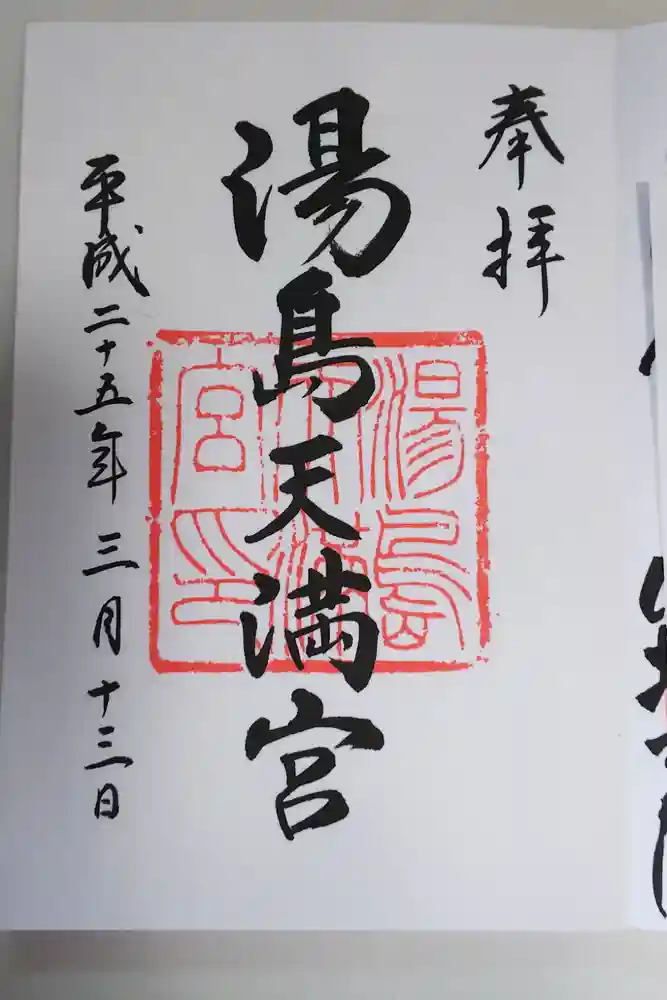 奉拝
湯島天満宮
湯島天満宮印
平成二十五年三月十三日